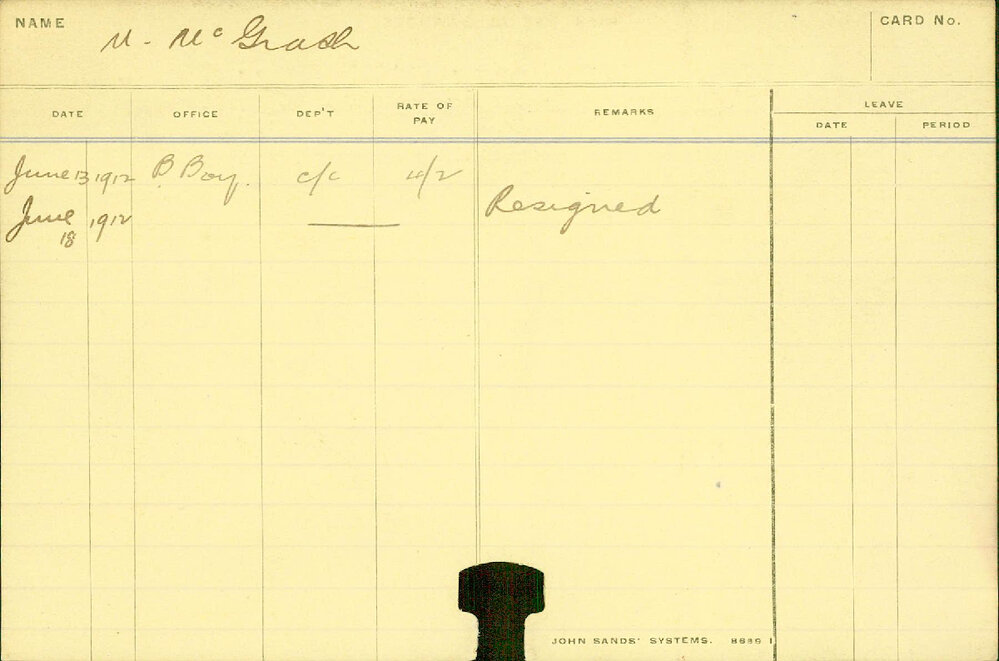 NAME M. McGrath CARD No.
DATE OFFICE DEP'T RATE OF PAY REMARKS LEAVE
DATE PERIOD
June 13 1912 B. Boy. c/c 4/2
June 18 1912 Resigned
JOHN SANDS' SYSTEMS. 8686 1